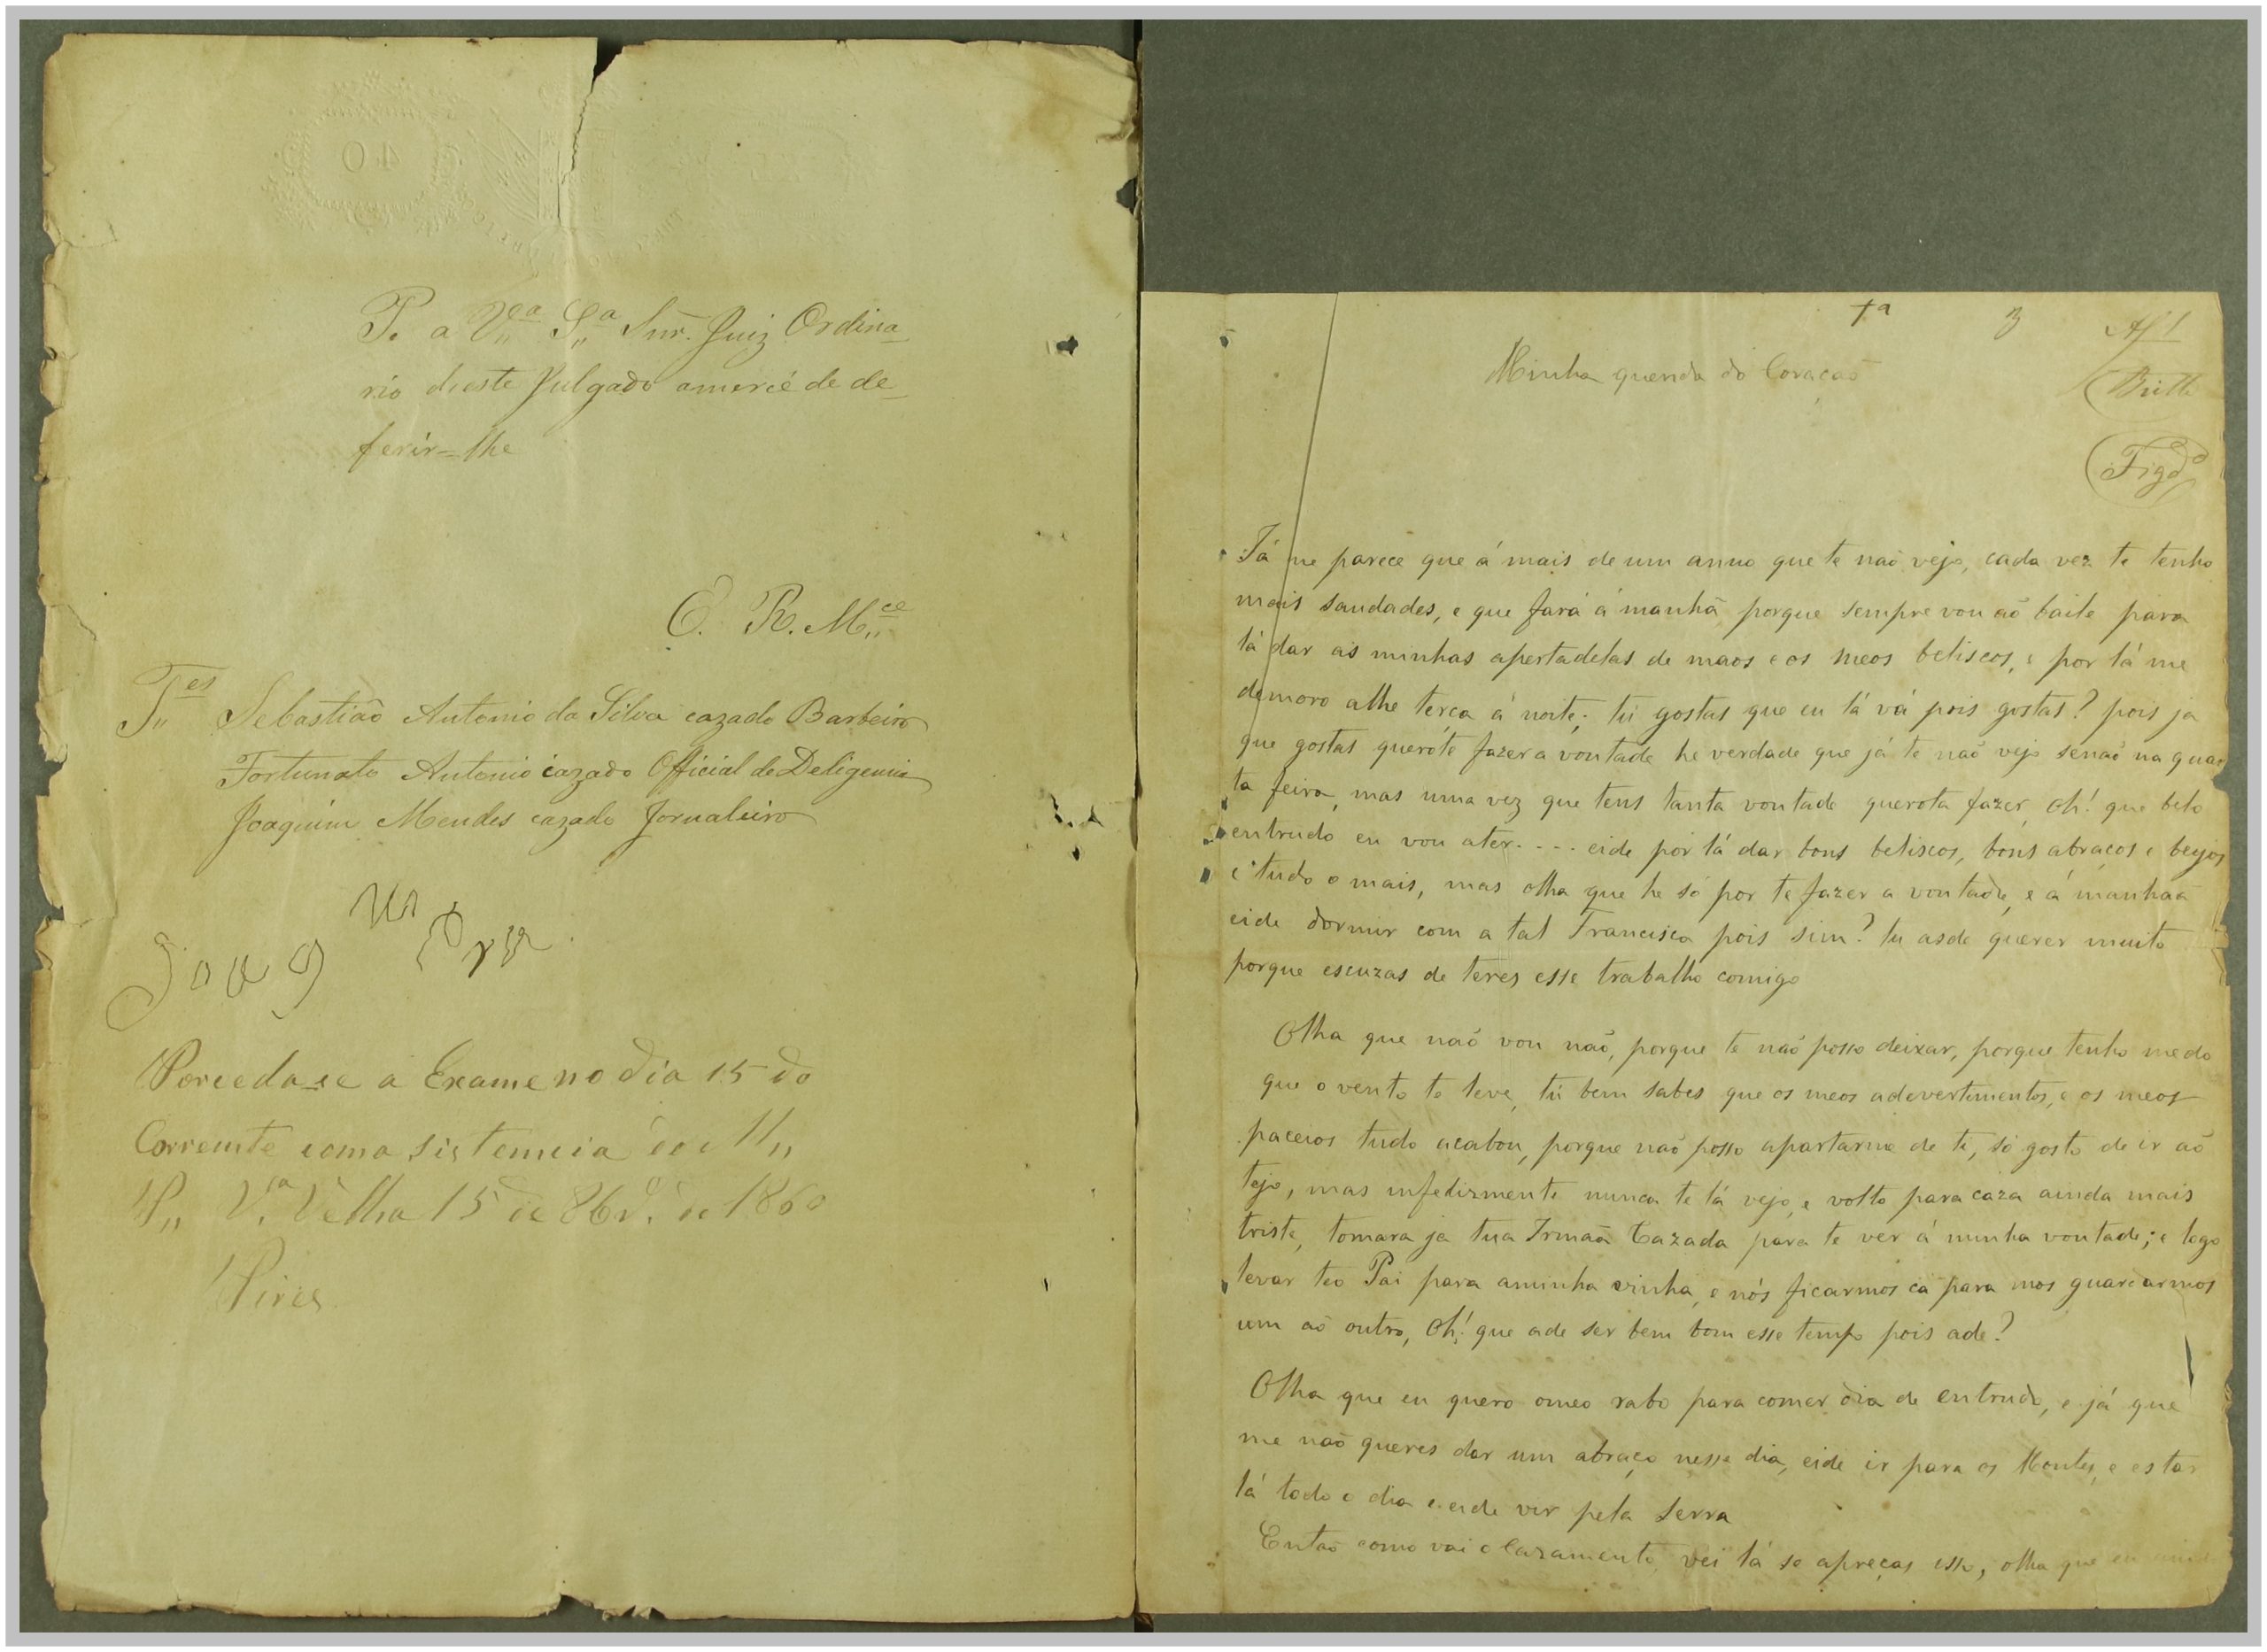 P. a V.ª S.ª Snr. Juiz Ordina
rio dieste Julgado amercê de de
ferir=lhe
E. R. M.ce
T.es Sebastiaõ Antonio da Silva cazado Barbeiro
Fortunato Antonio cazado Official de Deligencia
Joaquim Mendes cazado Jornaleiro
Porceda-se a Exame no dia 15 do
Corremte coma sistemcia do M,,
P,, V.ª Velha 15 de 1860
Pires
1ª 3
Minha querida do Coraçaõ
Britto
Figdo
Já me parece que á mais de um anno que te naõ vejo, cada vez te tenho
mais saudades, e que fará á manhã porque sempre vou aõ baile para
lá dar as minhas apertadelas de maos e os meos beliscos, e por lá me
demoro athe terca á noite; tú gostas que eu lá vá pois gostas? pois ja
que gostas queróte fazer a vontade he verdade que já te naõ vejo senaõ na quar
ta feira, mas uma vez que tens tanta vontade querota fazer, oh! que belo
entrudo eu vou ater.... eide por lá dar bons beliscos, bons abracos e beijos
e tudo o mais, mas olha que he só por te fazer a vontade, e á manhaã
eide dormir com a tal Francisca pois sim? tu asde querer muito
porque escuzas de teres esse trabalho comigo
Olha que naõ vou naõ, porque te naõ posso deixar, porque tenho medo
que o vento te leve, tú bem sabes que os meos adevertimentos, e os meos
paceios tudo acabou, porque naõ posso apartarme de ti, só gosto de ir aõ
tejo, mas infelizmente nunca te lá vejo, e volto para caza ainda mais
triste, tomara ja tua Irmaã Cazada para te ver á minha vontade; e logo
levar teo Pai para aminha vinha, e nós ficarmos cá para nos guardarmos
um aõ outro, oh! que ade ser bem bom esse tempo pois ade?
Olha que eu quero omeo rabo para comer dia de entrudo, e já que
me naõ queres dar um abraço nesse dia, eide ir para os Montes, e estar
lá todo o dia e eide vir pela serra
Entaõ como vai o Cazamento, vei lá se apreças isso, olha que eu